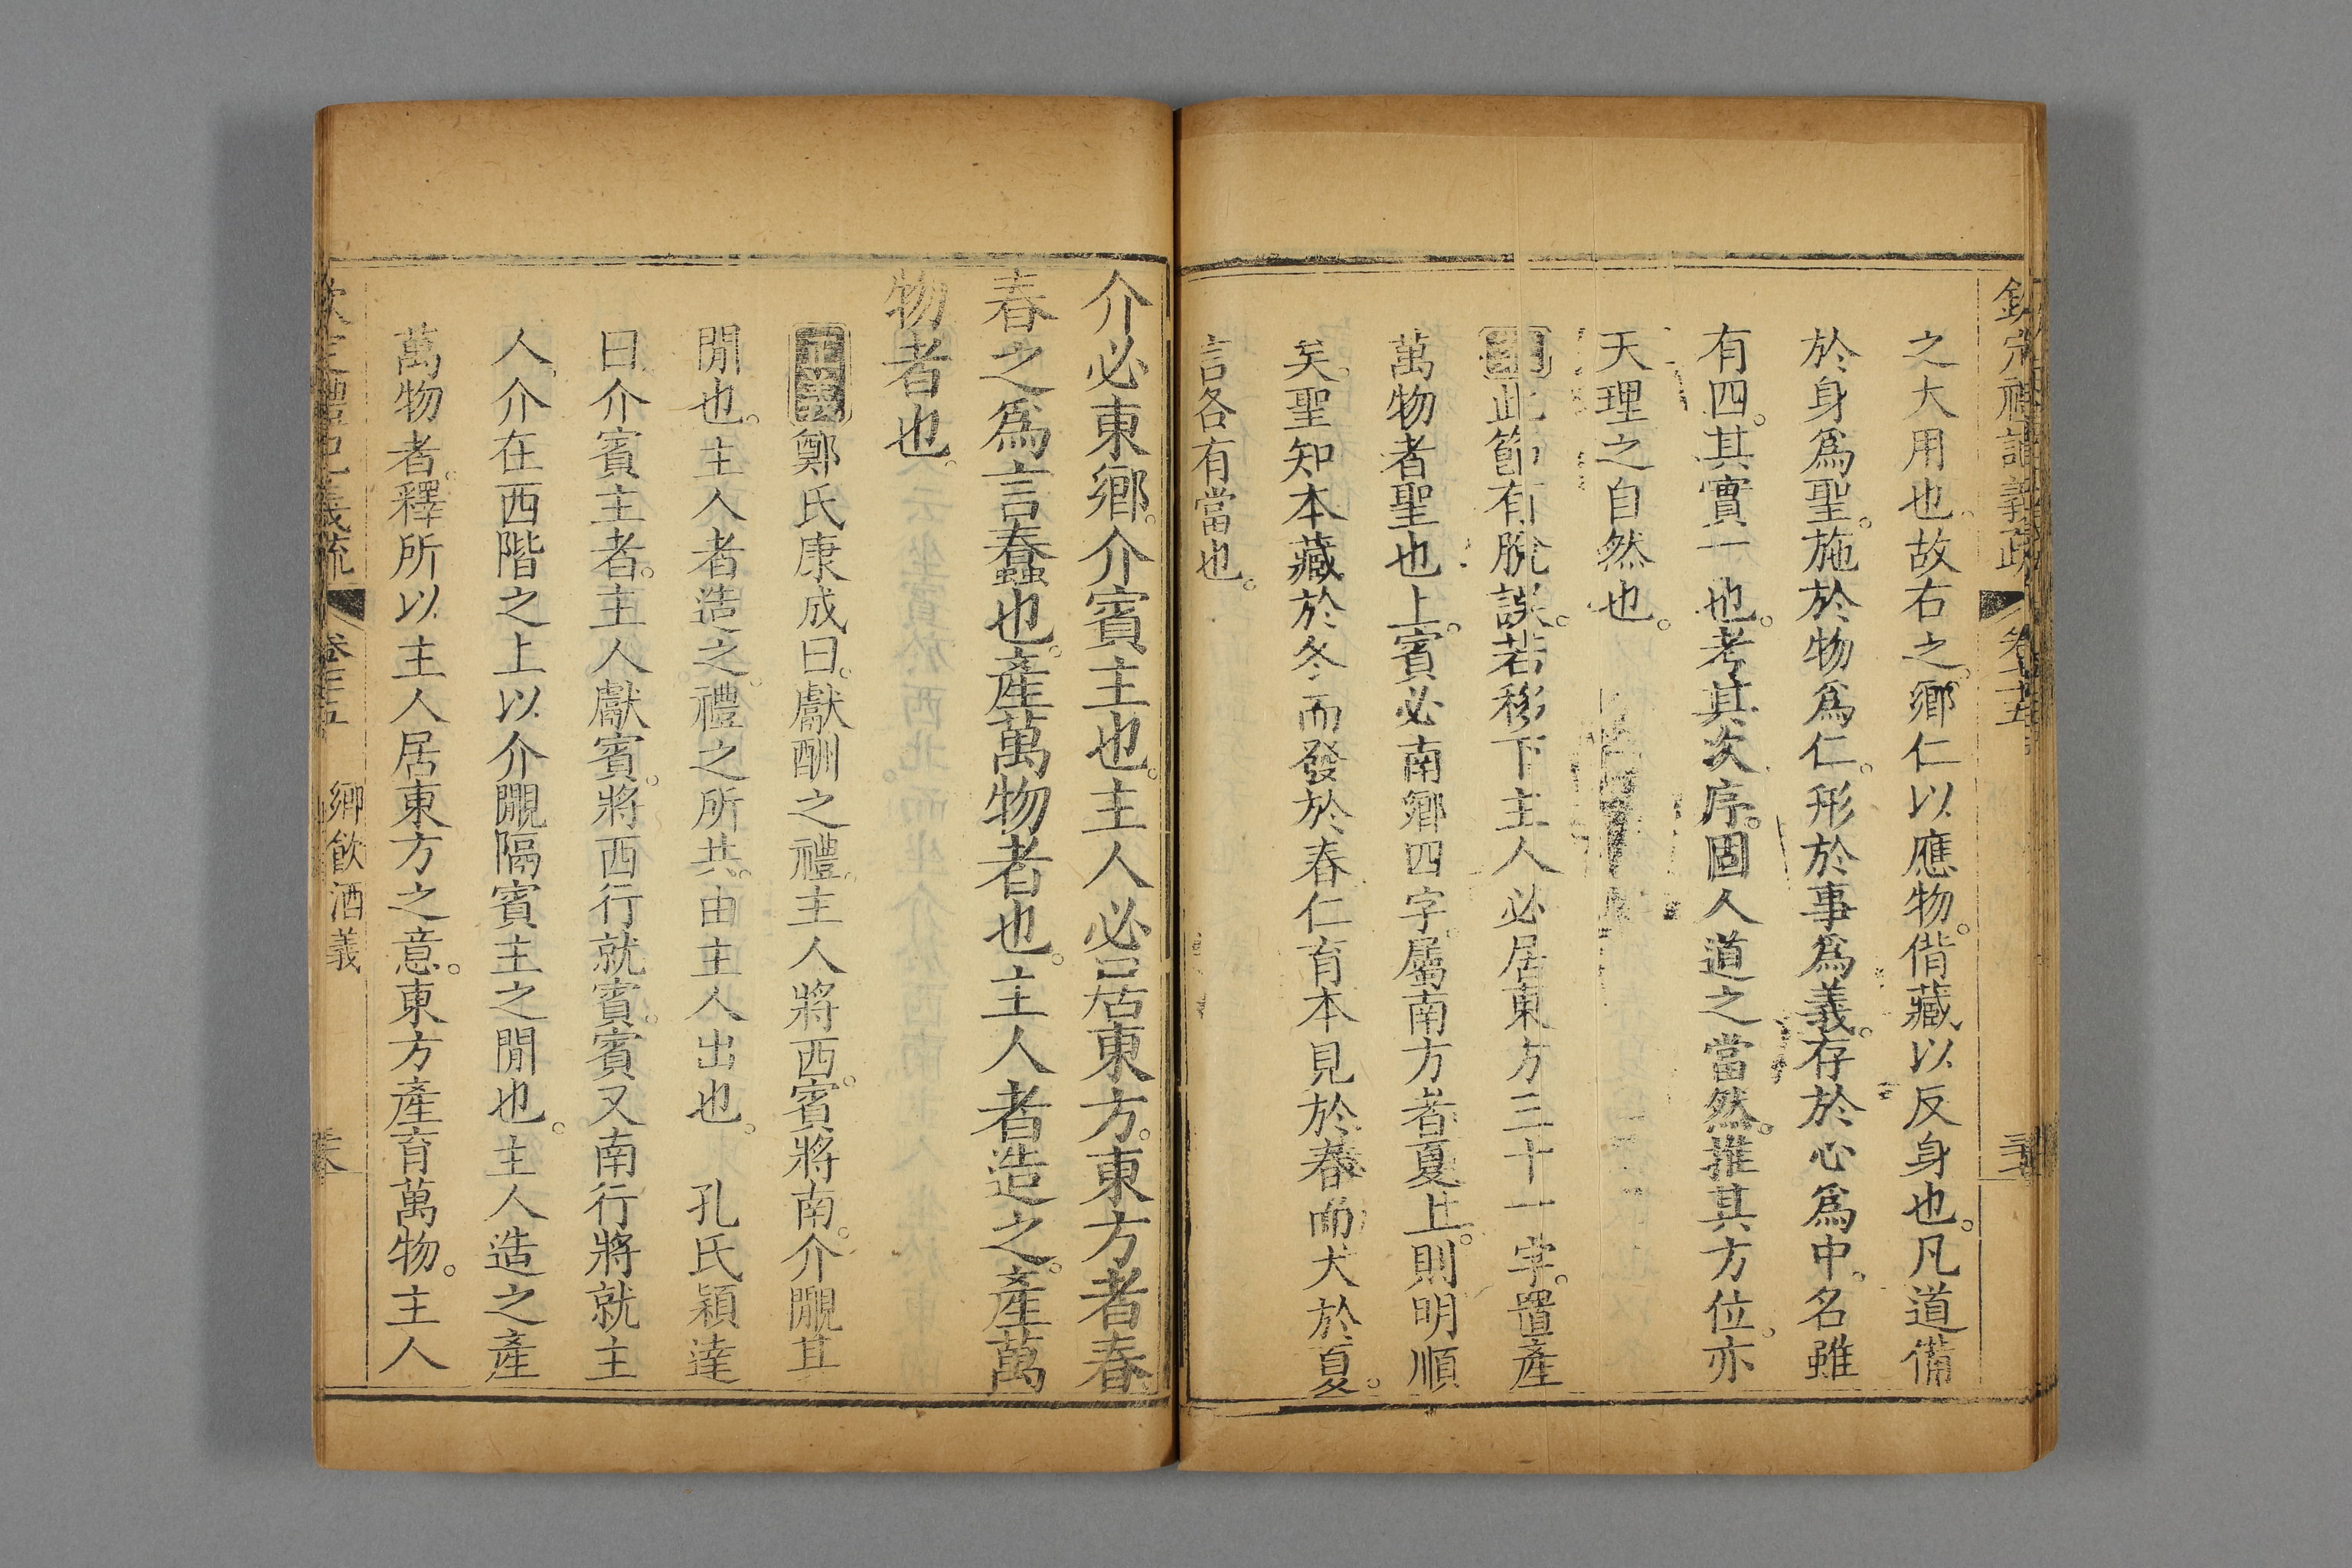 欽定禮記義疏 卷七十五
之大用也故右之鄉仁以應物偝藏以反身也凡道備
於身爲聖施於物爲仁形於事爲義存於心爲中名雖
有四其實一也考其次序固人道之當然推其方位亦
天理之自然也
此節有脫誤若移下主人必居東方三十一字置產
萬物者聖也上賓必南鄉四字屬南方者夏上則明順
矣聖知本藏於冬而發於春仁育本見於春而大於夏
言各有當也
介必東鄉介賓主也主人必居東方東方者春
春之爲言蠢也產萬物者也主人者造之產萬
物者也
正義鄭氏康成曰獻酬之禮主人將西賓將南介覵其
閒也主人者造之禮之所共由主人出也 孔氏穎達
曰介賓主者主人獻賓將西行就賓賓又南行將就主
人介在西階之上以介覵隔賓主之閒也主人造之產
萬物者釋所以主人居東方之意東方產育萬物主人
欽定禮記義疏 卷七十五 鄉飲酒義